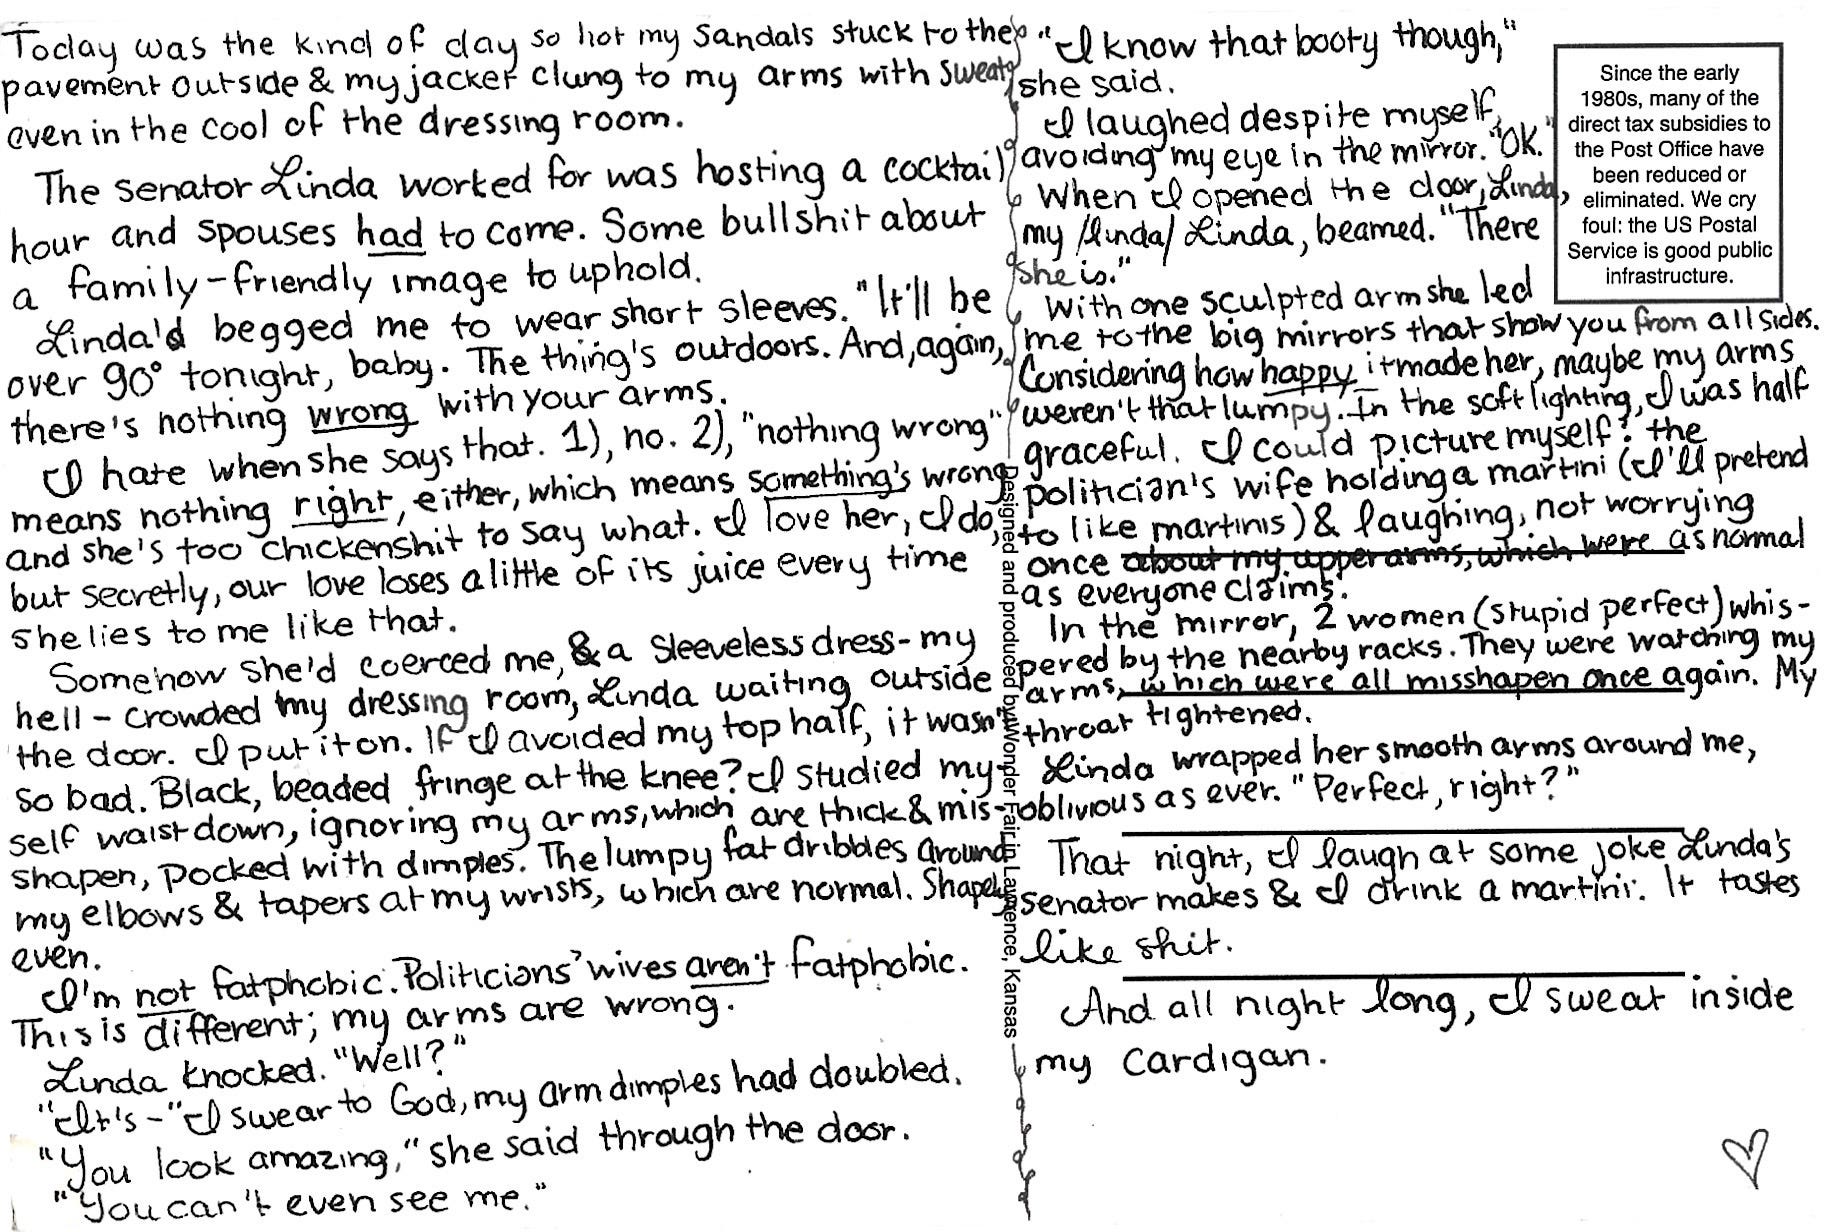 Today was the kind of day so hot my sandals stuck to the
pavement outside & my jacket clung to my arms with sweat,
even in the cool of the dressing room.
The senator Linda worked for was hosting a cocktail
hour and spouses had to come. Some bullshit about
a family-friendly image to uphold.
Linda'd begged me to wear short sleeves. "It'll be
over 90° tonight, baby. The thing's outdoors. And, again,
there's nothing wrong with your arms.
I hate when she says that. 1), no. 2), "nothing wrong"
means nothing right, either, which means something's wrong
and she's too chickenshit to say what. I love her, I do,
but secretly, our love loses a little of its juice every time
she lies to me like that.
Somehow she'd coerced me, & a sleeveless dress - my
hell - crowded my dressing room, Linda waiting outside
the door. I put it on. If I avoided my top half, it wasn't
so bad. Black, beaded fringe at the knee? I studied my-
self waist down, ignoring my arms, which are thick & mis-
shapen, pocked with dimples. The lumpy fat dribbles around
my elbows & tapers at my wrists, which are normal. Shapely,
even.
I'm not fatphobic. Politicians' wives aren't fatphobic.
This is different; my arms are wrong.
Linda knocked. "Well?"
"It's-" I swear to God, my arm dimples had doubled.
"You look amazing," she said through the door.
"You can't even see me."
"I know that booty though,"
she said.
I laughed despite myself,
avoiding my eye in the mirror. "OK."
When I opened the door, Linda,
my /linda/ Linda, beamed. "There
she is."
With one sculpted arm she led
me to the big mirrors that show you from all sides.
Considering how happy it made her, maybe my arms
weren't that lumpy. In the soft lighting, I was half
graceful. I could picture myself: the
politician's wife holding a martini (I'll pretend
to like martinis) & laughing, not worrying
once about my upper arms, which were as normal
as everyone claims.
In the mirror, 2 women (stupid perfect) whis-
pered by the nearby racks. They were watching my
arms, which were all misshapen once again. My
throat tightened.
Linda wrapped her smooth arms around me,
oblivious as ever. "Perfect, right?"
That night, I laugh at some joke Linda's
senator makes & I drink a martini. It tastes
like shit.
And all night long, I sweat inside
my cardigan.
Since the early
1980s, many of the
direct tax subsidies to
the Post Office have
been reduced or
eliminated. We cry
foul: the US Postal
Service is good public
infrastructure.
Designed and produced by Wonder Fair in Lawrence, Kansas